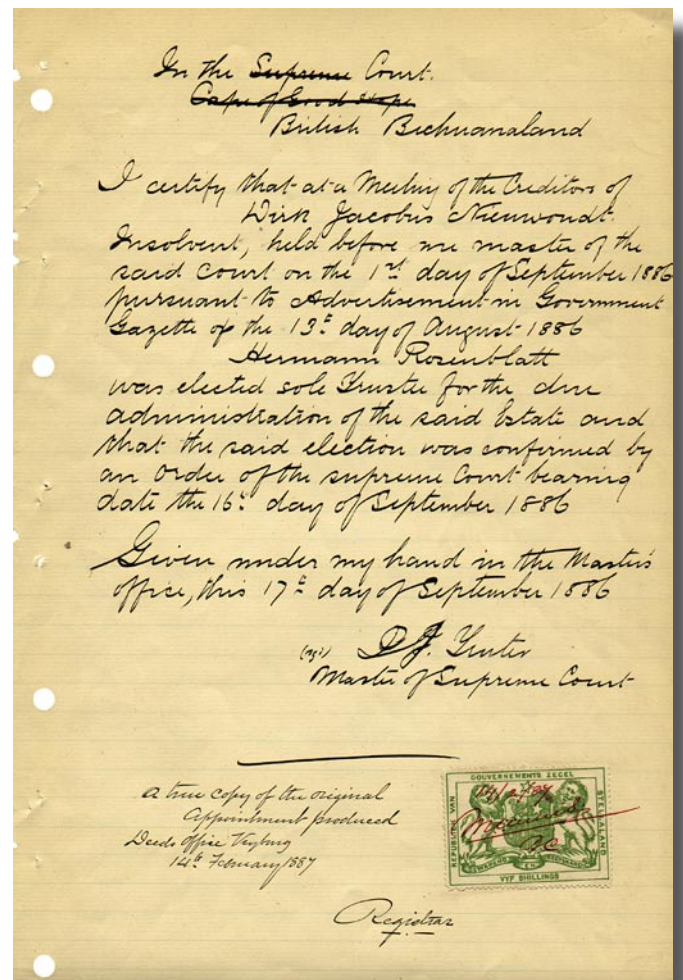 In the Supreme Court.
Cape of Good Hope
British Bechuanaland
I certify that at a Meeting of the Creditors of
Dirk Jacobus Nieuwoudt
Insolvent, held before me master of the
said court on the 1st day of September 1886
pursuant to Advertisement in Government
Gazette of the 13th day of August 1886
Hermann Rosenblatt
was elected sole Trustee for the due
administration of the said Estate and
that the said election was confirmed by
an Order of the supreme Court bearing
date the 16th day of September 1886
Given under my hand in the Master's
office, this 17th day of September 1886
Master of Supreme Court
a true copy of the original
Appointment produced
Deeds Office Vryburg
14th February 1887
Registrar
GOUVERNEMENTS ZEGEL
REPUBLIEK VAN
STELLALAND
14/2/87
EN
VYF SHILLINGS